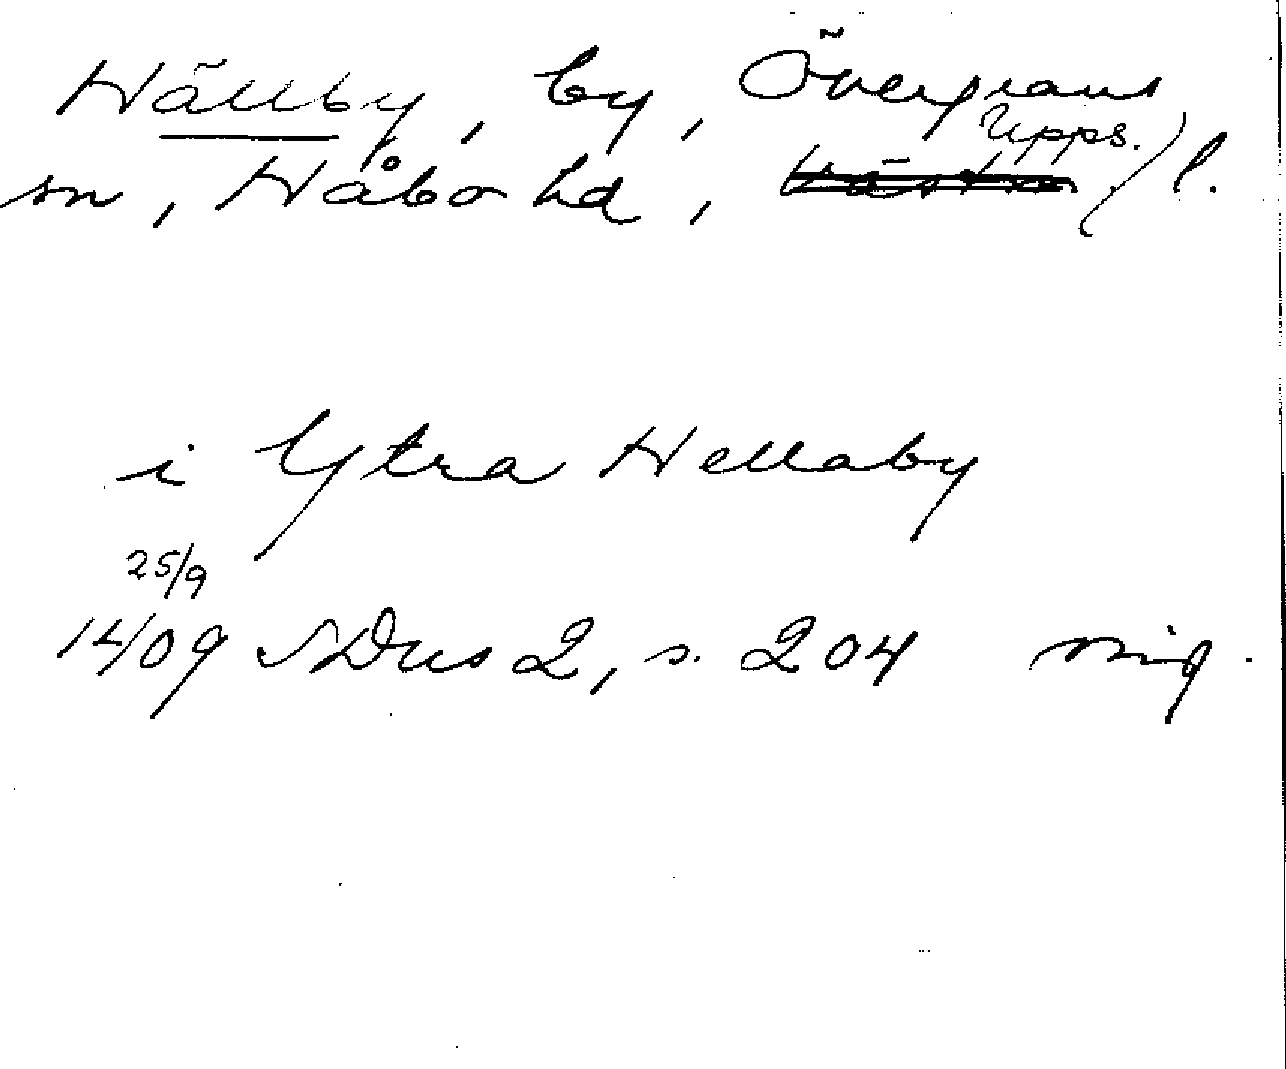 Hällby, by, Övergrans
Upps.
sn, Håbo hd, Västm. l.
i Ytra Hellaby
25/9
1409 SDns 2, s. 204 sig.